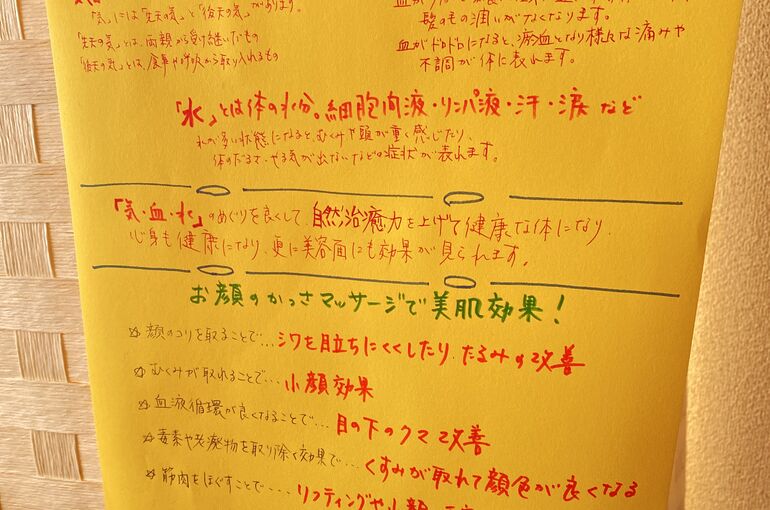 「気」には「先天の気」と「後天の気」があります。
「先天の気」とは、両親から受け継いだもの
「後天の気」とは、食事や呼吸から取り入れるもの
髪のもの潤いがなくなります。
血がドロドロになると、瘀血となり様々な痛みや
不調が体に表れます。
「水」とは体の水分。細胞間液・リンパ液・汗・涙など
水が多い状態になると、むくみや頭が重く感じたり、
体のだるさ、やる気が出ないなどの症状が表れます。
「気・血・水」のめぐりを良くして、自然治癒力を上げて健康な体になり、
心身も健康になり、更に美容面にも効果が見られます。
お顔のかっさマッサージで美肌効果!
☆顔のコリを取ることで...シワを目立ちにくくしたり、たるみの改善
☆むくみが取れることで...小顔効果
☆血液循環が良くなることで...目の下のクマ改善
☆毒素や老廃物を取り除く効果で...くすみが取れて顔色が良くなる
☆筋肉をほぐすことで....リフティングや小顔